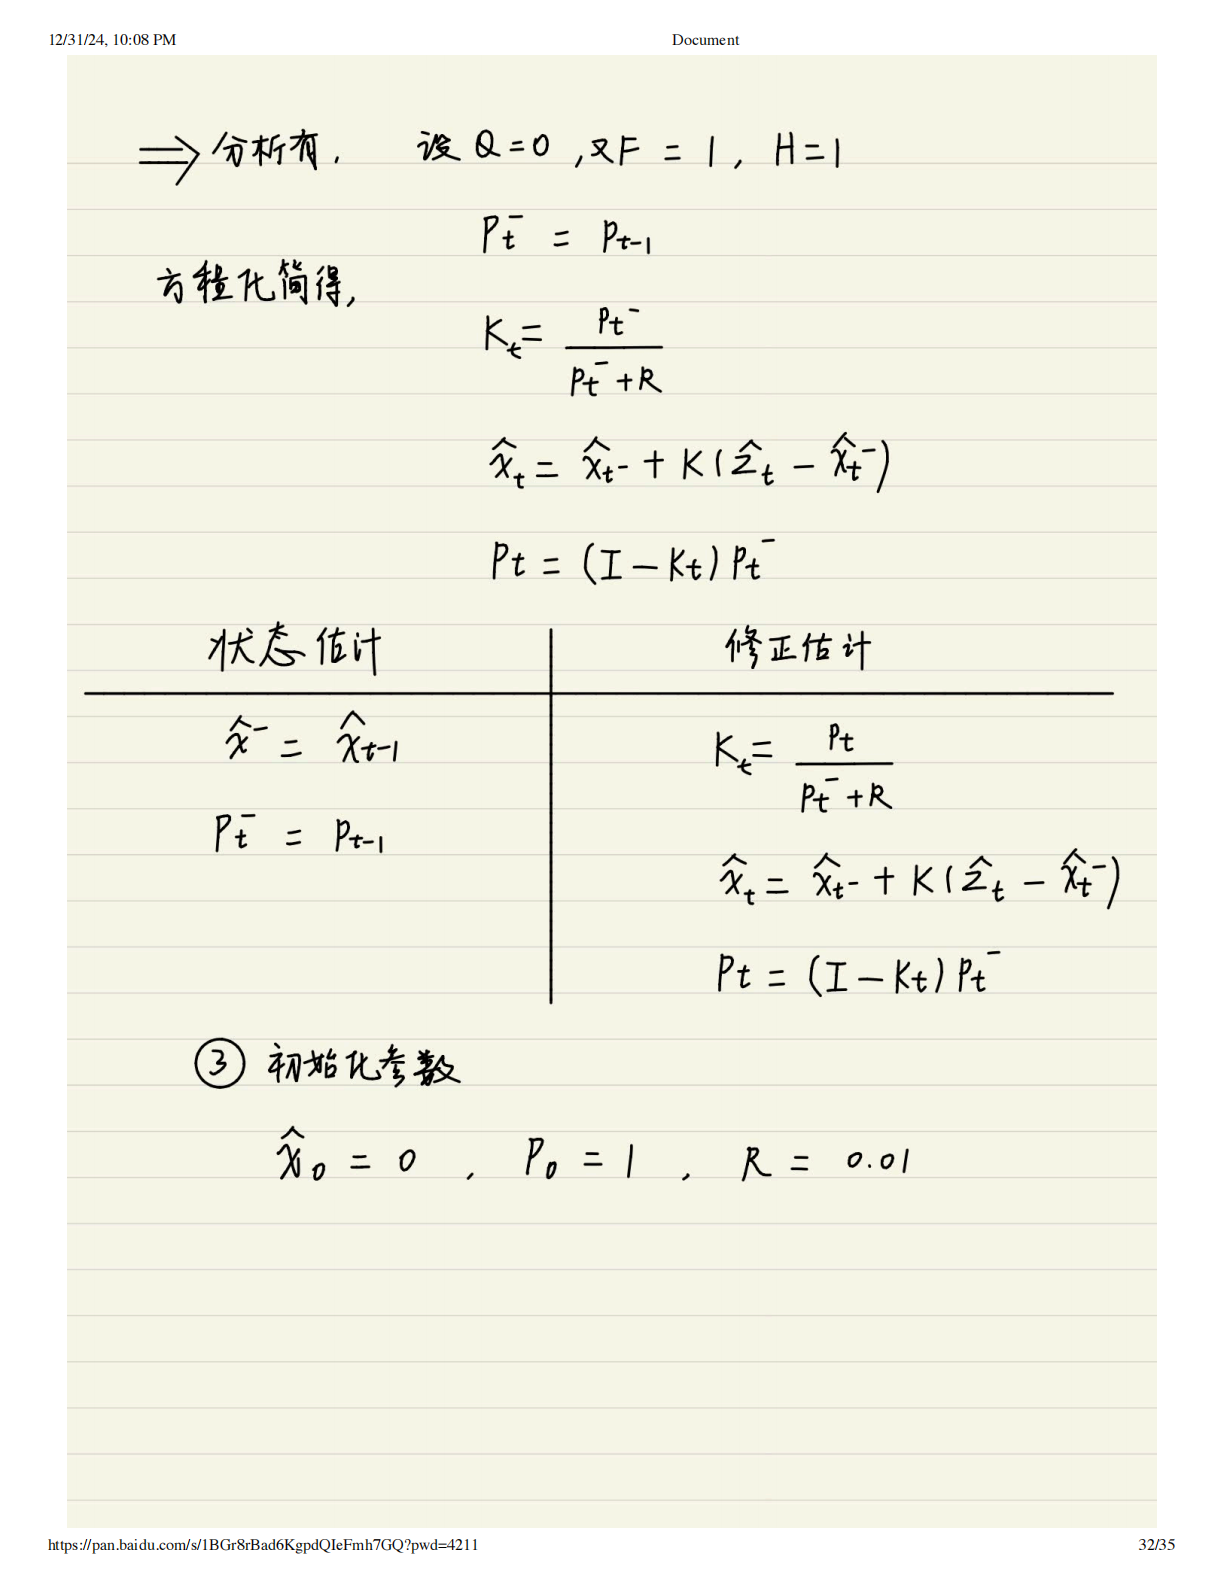 12/31/24, 10:08 PM Document
⟹ 分析有, 设 Q=0 ,又F = 1, H=1
Pt⁻ = Pt-1
方程化简得,
Kt = Pt⁻ / (Pt⁻ + R)
x̂t = x̂t⁻ + K(ẑt − x̂t⁻)
Pt = (I − Kt) Pt⁻
状态估计 修正估计
x̂⁻ = x̂t-1
Pt⁻ = Pt-1
Kt = Pt / (Pt⁻ + R)
x̂t = x̂t⁻ + K(ẑt − x̂t⁻)
Pt = (I − Kt) Pt⁻
③ 初始化参数
x̂0 = 0 , P0 = 1 , R = 0.01
https://pan.baidu.com/s/1BGr8rBad6KgpdQIeFmh7GQ?pwd=4211 32/35